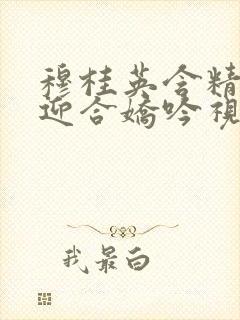 穆桂英含精
迎合嬌吟視
我最白